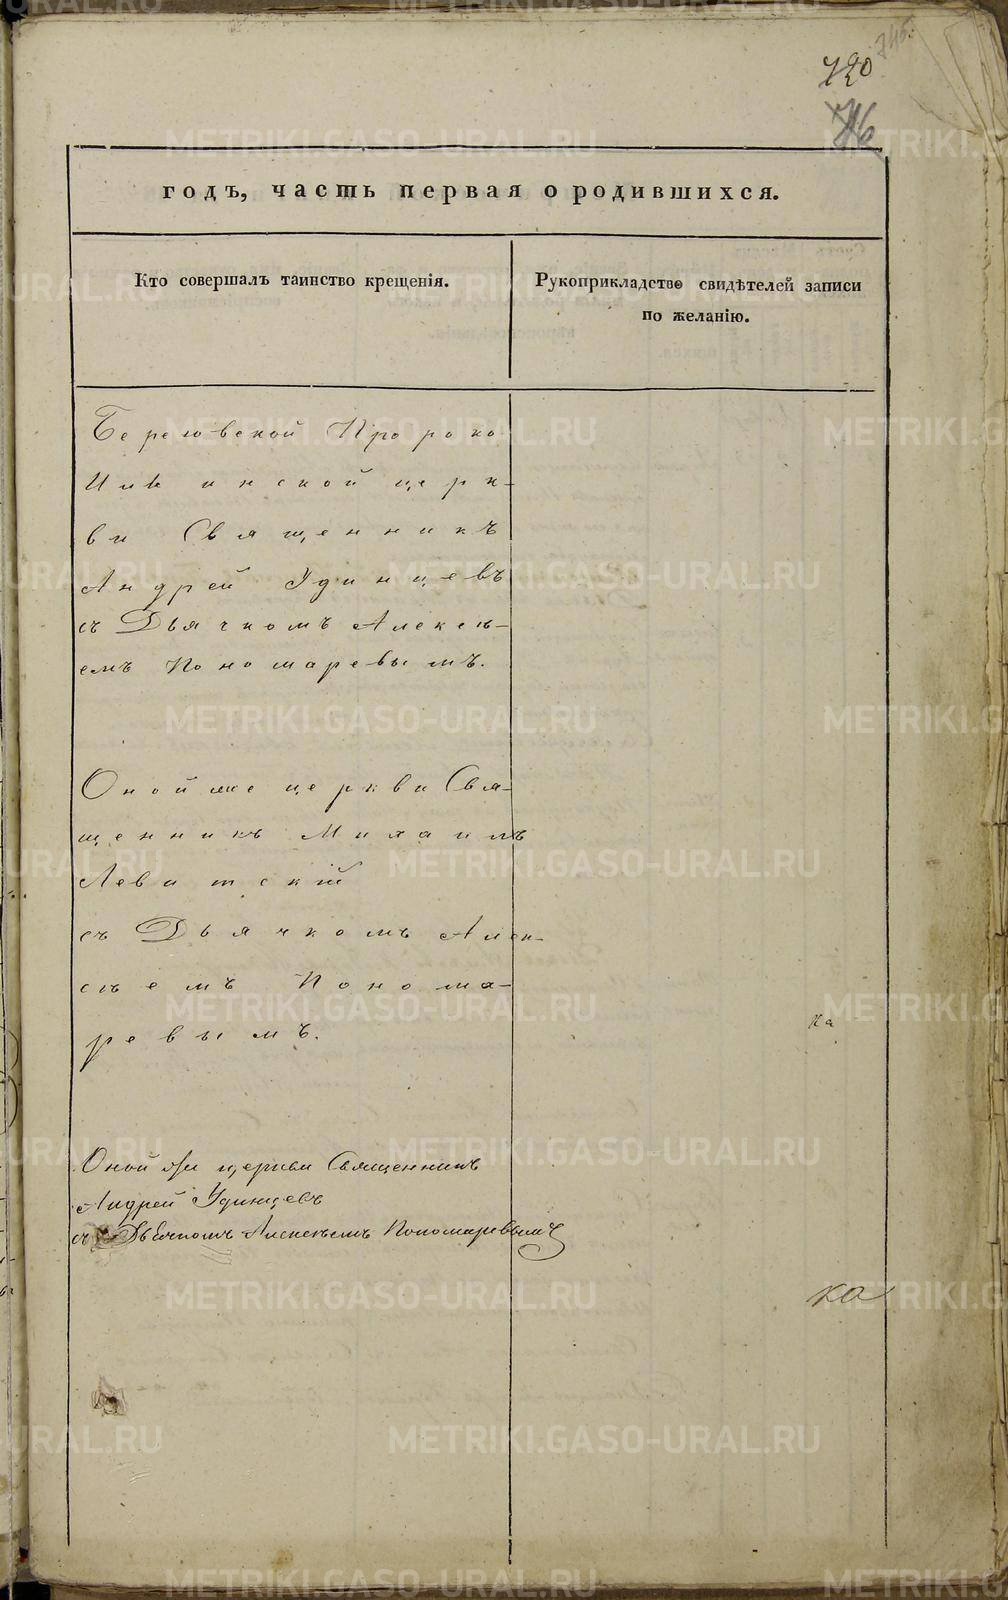 745.
720
годъ, часть первая о родившихся.
Кто совершалъ таинство крещенія.
Рукоприкладство свидѣтелей записи
по желанію.
Березовской Пророко
Ильинской церк-
ви Священникъ
Андрей Удинцевъ
съ Дьячкомъ Алексѣ-
емъ Пономаревымъ.
Оной же церкви Свя-
щенникъ Михаилъ
Левитскій
съ Дьячкомъ Алек-
сѣемъ Понома-
ревымъ.
ка
Оной же церкви Священникъ
Андрей Удинцевъ
съ Дьячкомъ Алексѣемъ Пономаревымъ
ка
METRIKI.GASO-URAL.RU